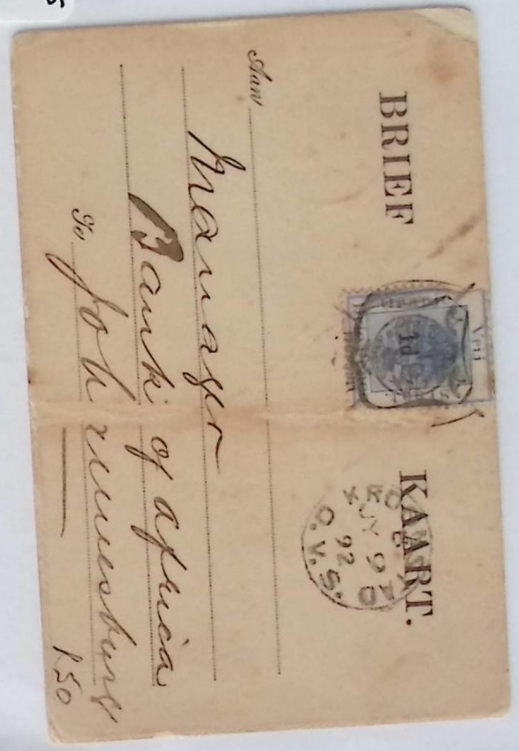 BRIEF KAART.
Vrij
1d
KROONSTAD
JY 9
92
O.V.S.
Aan
Manager
Bank of Africa
To Johannesburg